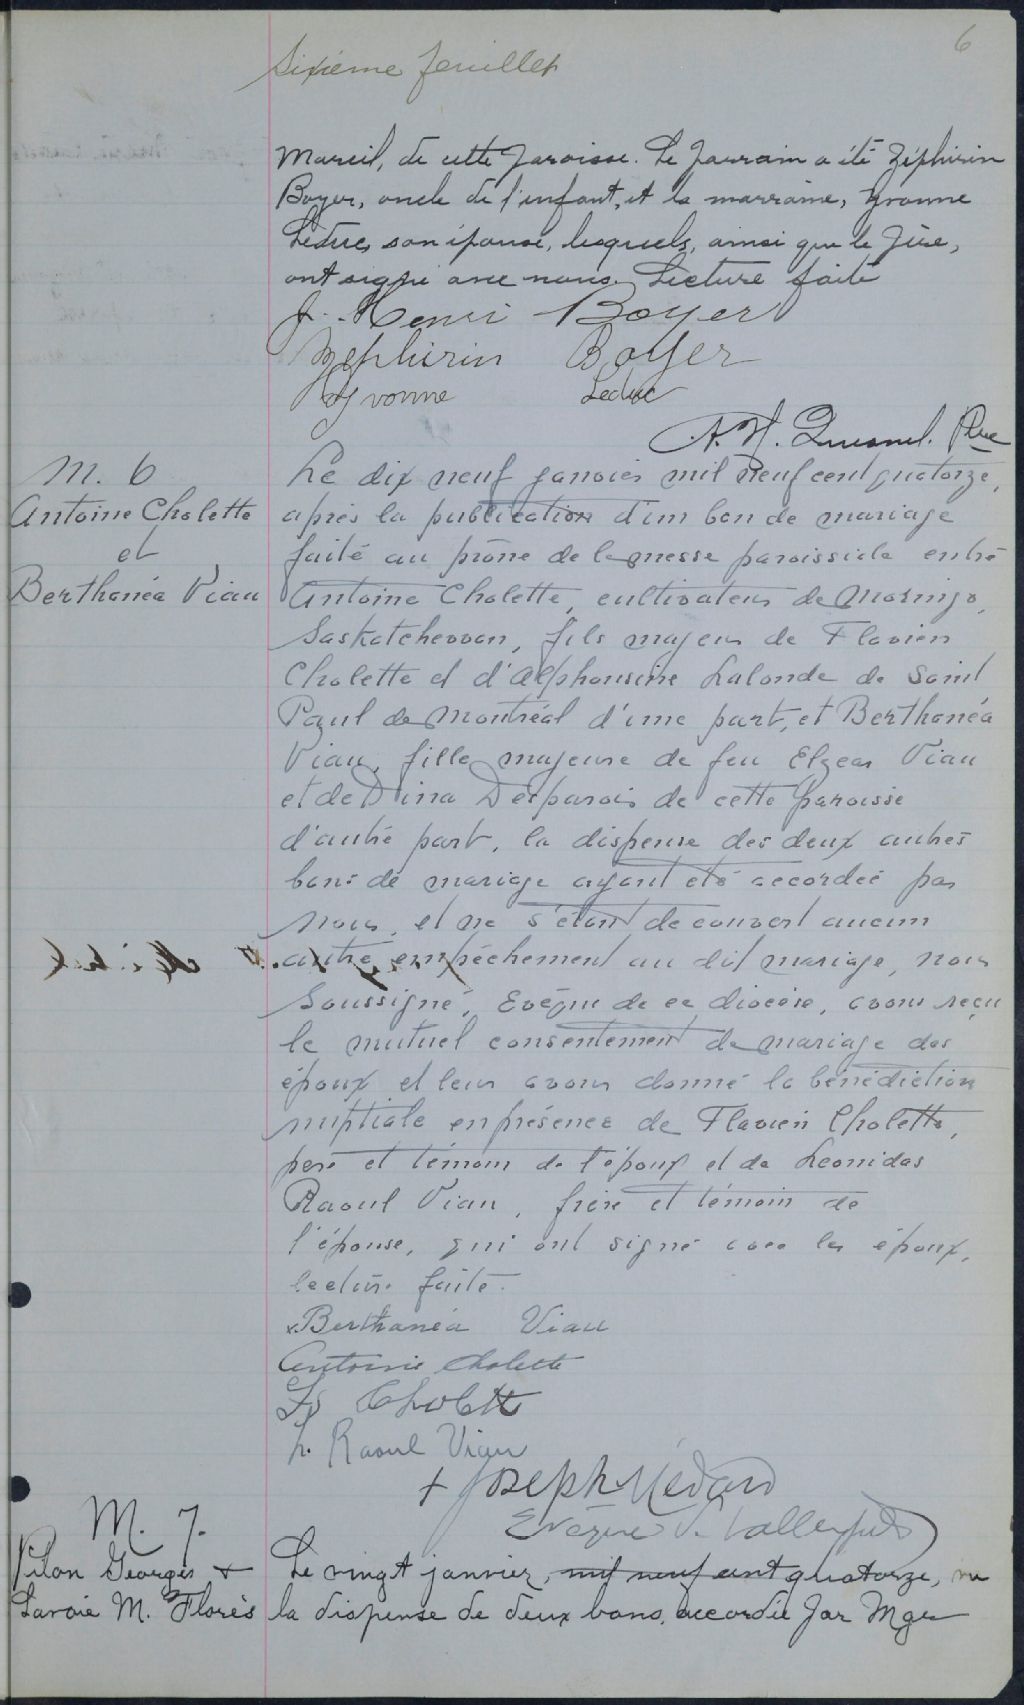 6
Sixième feuillet
Mareil, de cette paroisse. Le parrain a été Zéphirin
Boyer, oncle de l'enfant, et la marraine, Yvonne
Leduc, son épouse, lesquels, ainsi que le père,
ont signé avec nous. Lecture faite
J. Henri Boyer
Zephirin Boyer
Yvonne Leduc
A. N. Quesnel. Ptre
M. 6
Antoine Cholette
et
Berthanéa Viau
Le dix neuf janvier mil neuf cent quatorze,
après la publication d'un ban de mariage
faite au prône de la messe paroissiale entre
Antoine Cholette, cultivateur de
Saskatchewan, fils majeur de Flavien
Cholette et d'Alphonsine Lalonde de Saint
Paul de Montréal d'une part, et Berthanéa
Viau, fille majeure de feu Elzear Viau
et de Dina Desparois de cette paroisse
d'autre part, la dispense des deux autres
bans de mariage ayant été accordée par
nous, et ne s'étant découvert aucun
autre empêchement au dit mariage, nous
Soussigné, Evêque de ce diocèse, avons reçu
le mutuel consentement de mariage des
époux et leur avons donné la bénédiction
nuptiale en présence de Flavien Cholette,
père et témoin de l'époux et de Leonidas
Raoul Viau, frère et témoin de
l'épouse, qui ont signé avec les époux,
lecture faite.
x Berthanéa Viau
Antoine Cholette
Fs Cholette
L. Raoul Viau
+ Joseph Médard
Evêque de Valleyfield
M. 7.
Pilon Georges +
Lavoie M. Florès
Le vingt janvier, mil neuf cent quatorze, vu
la dispense de deux bans accordée par Mgr